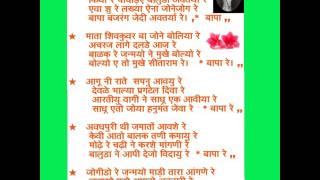 एवा शु रे लख्या ऐना जोनेजोग रे
बापा बजरंग जेदी अवतर्या रे। , * बापा ,,
★ माता शिवकुवर बा जोने बोलिया रे
अचरज लागे दलडे आज रे
बाळक रे जन्म्यो ने मुखे बोल्यो रे
बोल्यो ए तो मुखे सीताराम रे। * बापा रे। ,,
★ आगू नी राते सपनु आवयु रे
देवळे भाल्या प्रगटेल दिवा रे
आरतीयू वागी ने साधू एक आवीया रे
साधू एतो जोया हनुमंत जेवा रे। * बापा ,,
★ अवधपुरी थी जमातों आवशे रे
केवी आतो बालक तणी कमायु रे
मोढ़े रे चढ़ी ने करशे मांगणी रे
बालुडा ने आपी देजो विदायु रे * बापा रे ,,
★ जोगीडो रे जन्मयो माडी तारा आंगणे रे